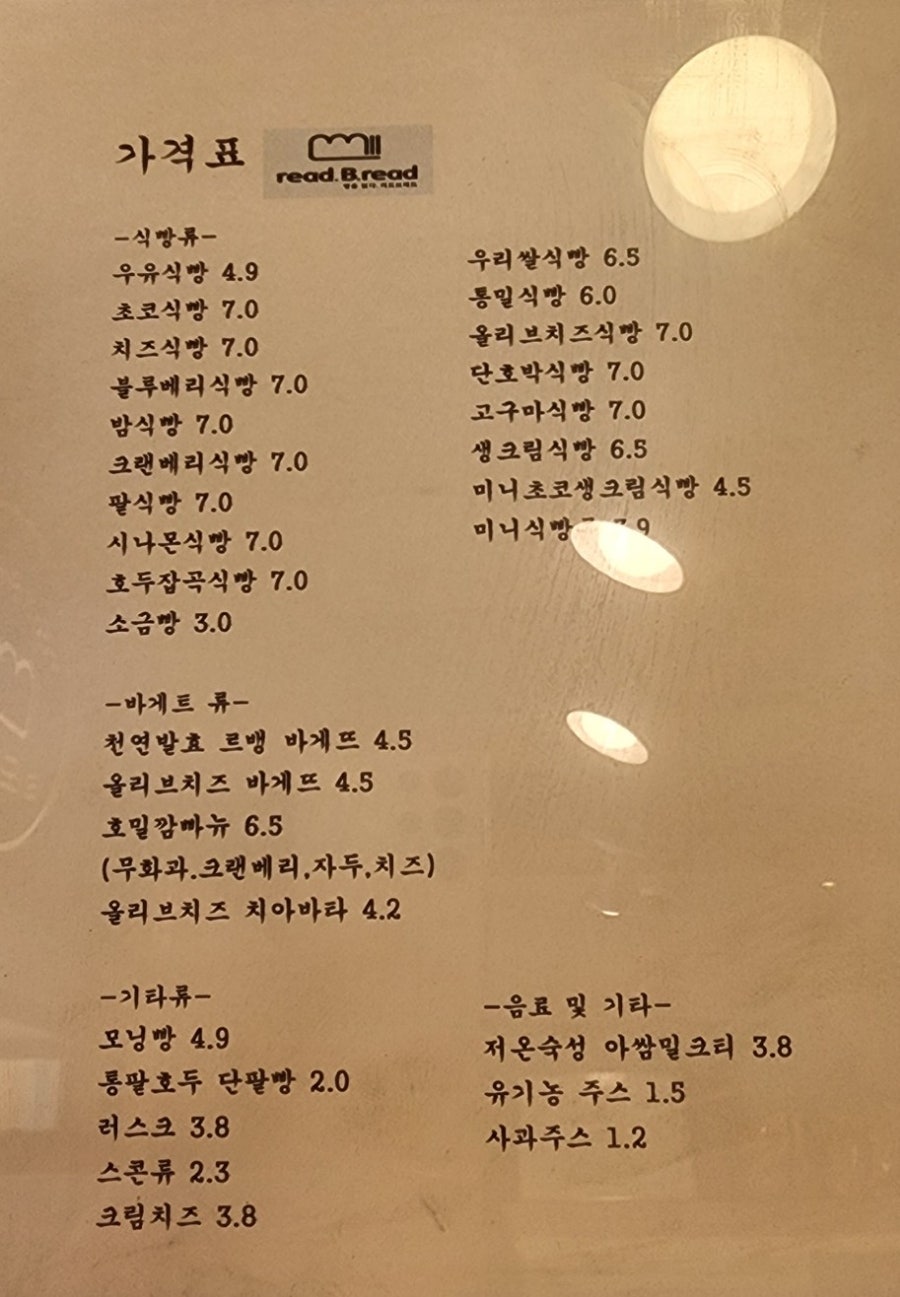 가격표
read.B.read
빵을 읽다. 리드브레드
-식빵류-
우유식빵 4.9
초코식빵 7.0
치즈식빵 7.0
블루베리식빵 7.0
밤식빵 7.0
크랜베리식빵 7.0
팥식빵 7.0
시나몬식빵 7.0
호두잡곡식빵 7.0
소금빵 3.0
우리쌀식빵 6.5
통밀식빵 6.0
올리브치즈식빵 7.0
단호박식빵 7.0
고구마식빵 7.0
생크림식빵 6.5
미니초코생크림식빵 4.5
미니식빵
-바게트 류-
천연발효 르뱅 바게뜨 4.5
올리브치즈 바게뜨 4.5
호밀깜빠뉴 6.5
(무화과.크랜베리,자두,치즈)
올리브치즈 치아바타 4.2
-기타류-
모닝빵 4.9
통팥호두 단팥빵 2.0
러스크 3.8
스콘류 2.3
크림치즈 3.8
-음료 및 기타-
저온숙성 아쌈밀크티 3.8
유기농 주스 1.5
사과주스 1.2